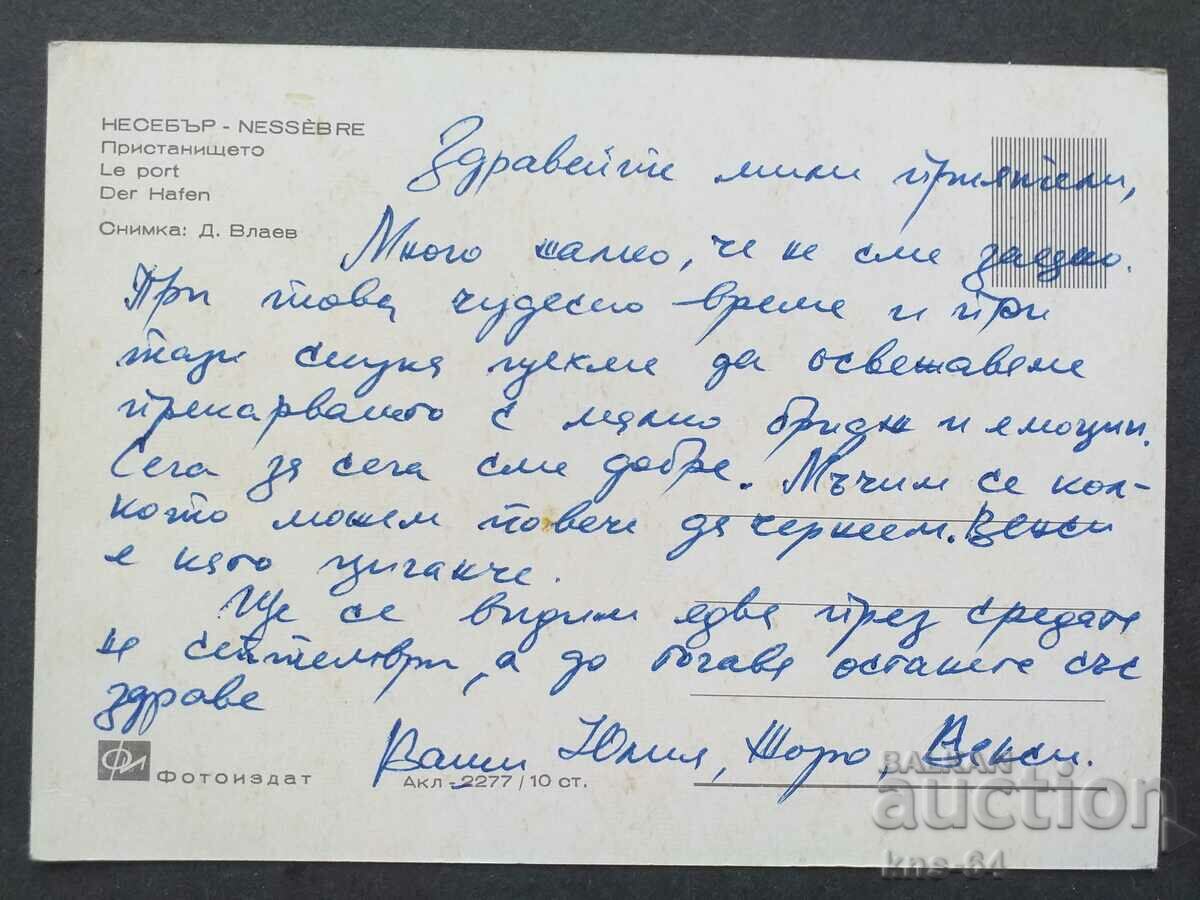 НЕСЕБЪР - NESSÈBRE
Пристанището
Le port
Der Hafen
Снимка: Д. Влаев
Здравейте мили приятели,
Много жалко, че не сме заедно.
При това чудесно време и при
тази скука щяхме да освежаваме
прекарването с малко бридж и емоции.
Сега за сега сме добре. Мъчим се кол-
кото можем повече да чернеем. Венси
е като циганче.
Ще се видим едва през средата
на септември, а до тогава останете със
здраве
Ваши Юлия, Жоро, Венси.
ФИ
Фотоиздат
Акл-2277/10 ст.
BALKAN
auction
kns-64